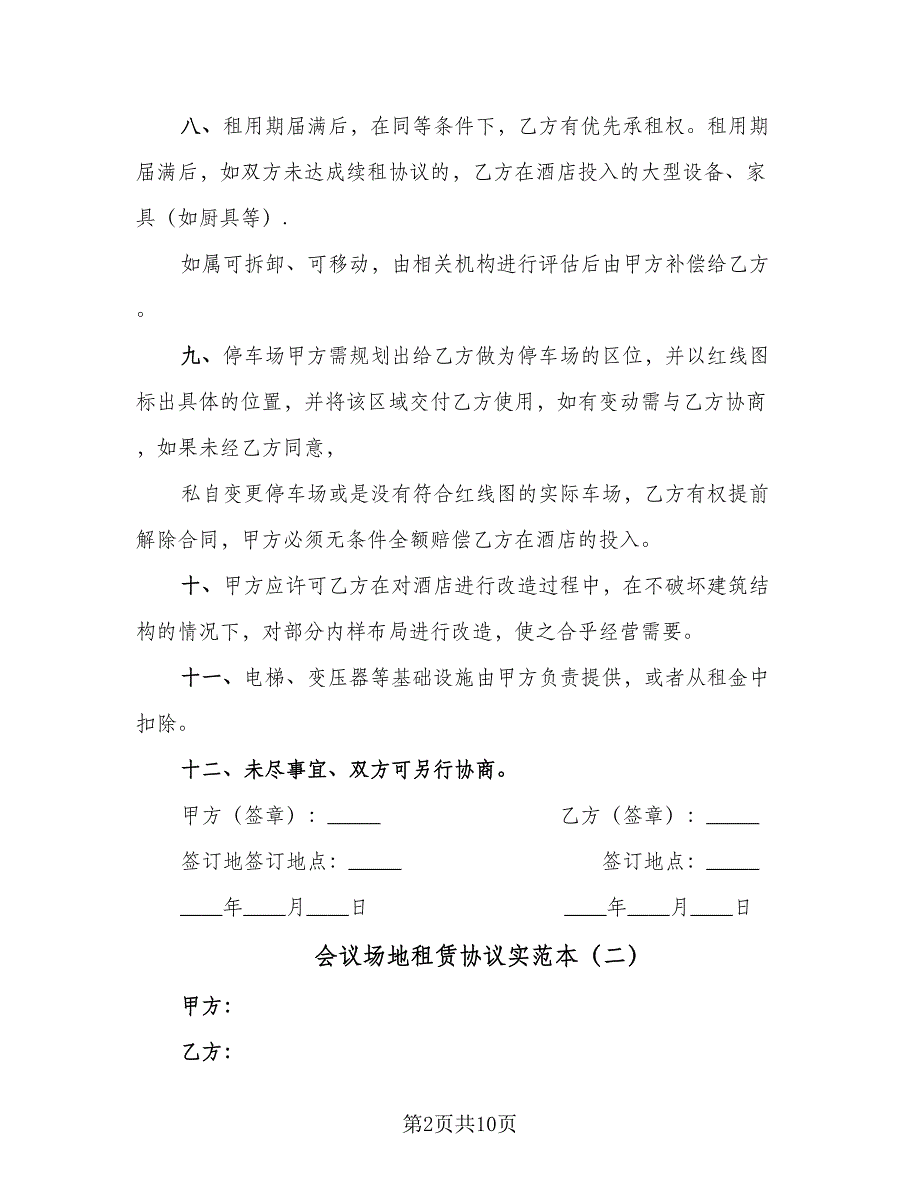 八、租用期届满后，在同等条件下，乙方有优先承租权。租用期
届满后，如双方未达成续租协议的，乙方在酒店投入的大型设备、家
具（如厨具等）.
如属可拆卸、可移动，由相关机构进行评估后由甲方补偿给乙方
。
九、停车场甲方需规划出给乙方做为停车场的区位，并以红线图
标出具体的位置，并将该区域交付乙方使用，如有变动需与乙方协商
，如果未经乙方同意，
私自变更停车场或是没有符合红线图的实际车场，乙方有权提前
解除合同，甲方必须无条件全额赔偿乙方在酒店的投入。
十、甲方应许可乙方在对酒店进行改造过程中，在不破坏建筑结
构的情况下，对部分内样布局进行改造，使之合乎经营需要。
十一、电梯、变压器等基础设施由甲方负责提供，或者从租金中
扣除。
十二、未尽事宜、双方可另行协商。
甲方（签章）：_____ 乙方（签章）：_____
签订地签订地点：_____ 签订地点：_____
____年____月____日 ____年____月____日
会议场地租赁协议实范本（二）
甲方：
乙方：
第2页共10页